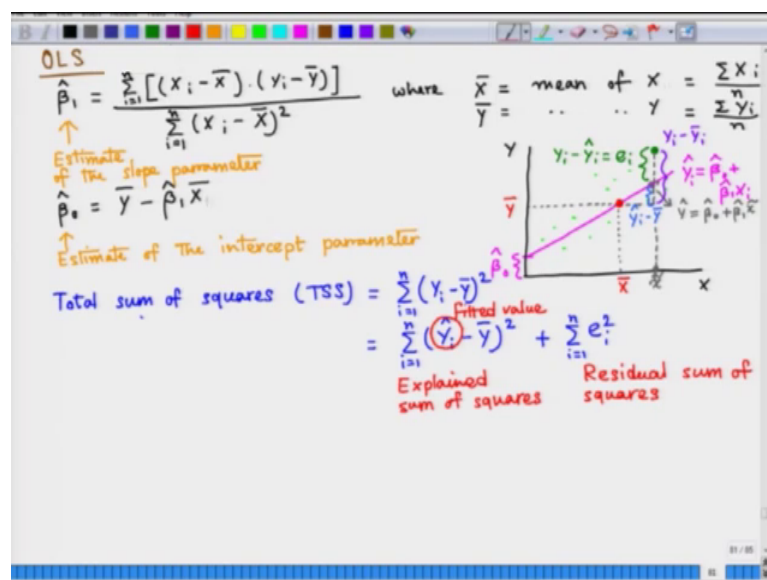 OLS
β̂₁ = Σⁿᵢ₌₁ [(Xᵢ − X̄) . (Yᵢ − Ȳ)] / Σⁿᵢ₌₁ (Xᵢ − X̄)² where X̄ = mean of X = ΣXᵢ / n
Ȳ = .. .. Y = ΣYᵢ / n
Estimate
of the slope parrameter
β̂₀ = Ȳ − β̂₁ X̄
Estimate of The intercept parrameter
Y
Yᵢ − Ŷᵢ = eᵢ
Yᵢ − Ȳᵢ
Ŷᵢ = β̂₀ +
β̂₁ Xᵢ
Ȳ
Ŷᵢ − Ȳ
Ŷ = β̂₀ + β̂₁ X̄
β̂₀
X̄
X
Total sum of squares (TSS) = Σⁿᵢ₌₁ (Yᵢ − Ȳ)²
fitted value
= Σⁿᵢ₌₁ (Ŷᵢ − Ȳ)² + Σⁿᵢ₌₁ eᵢ²
Explained
sum of squares
Residual sum of
squares
81 / 85